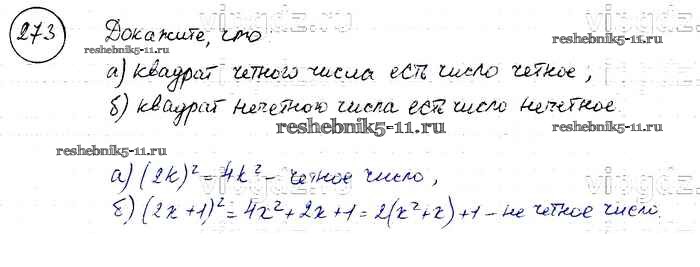 273 Докажите, что
reshebnik5-11.ru
reshebnik5-11.ru
а) квадрат четного числа есть число четное,
б) квадрат нечетного числа есть число нечетное.
reshebnik5-11.ru
reshebnik5-11.ru
а) (2k)² = 4k² - четное число,
б) (2x+1)² = 4x²+2x+1 = 2(x²+x)+1 - не четное число.